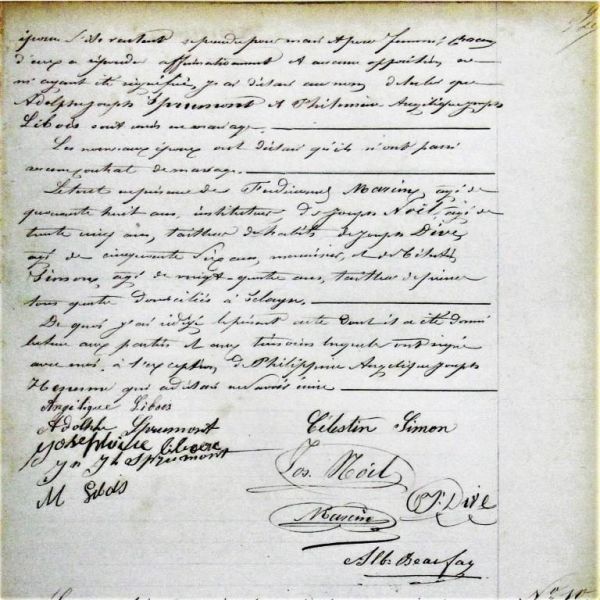 époux s'ils veulent se prendre pour mari et pour femme, chacun
d'eux a répondu affirmativement et aucune opposition ne
m'ayant été signifiée, j'ai déclaré au nom de la loi que
Adolphe Joseph Sprumont et Philomène Angélique Joseph
Libois sont unis en mariage.
Les nouveaux époux ont déclaré qu'ils n'ont passé
aucun contrat de mariage.
Le tout en présence de Ferdinand Marein, âgé de
quarante huit ans, instituteur, de Joseph Noël, âgé de
trente cinq ans, tailleur d'habits, de Joseph Dive,
âgé de cinquante six ans, menuisier, et de Célestin
Simon, âgé de vingt-quatre ans, tailleur de pierre
tous quatre domiciliés à Sclayn.
De quoi j'ai rédigé le présent acte dont il a été donné
lecture aux parties et aux témoins lesquels ont signé
avec moi, à l'exception de Philippine Angélique Joseph
qui a déclaré ne savoir écrire
Angélique Libois
Adolphe Sprumont
Célestin Simon
Jh Sprumont
Jos. Noël
M Libois
J. Dive
Marein
Alb. Beaufay